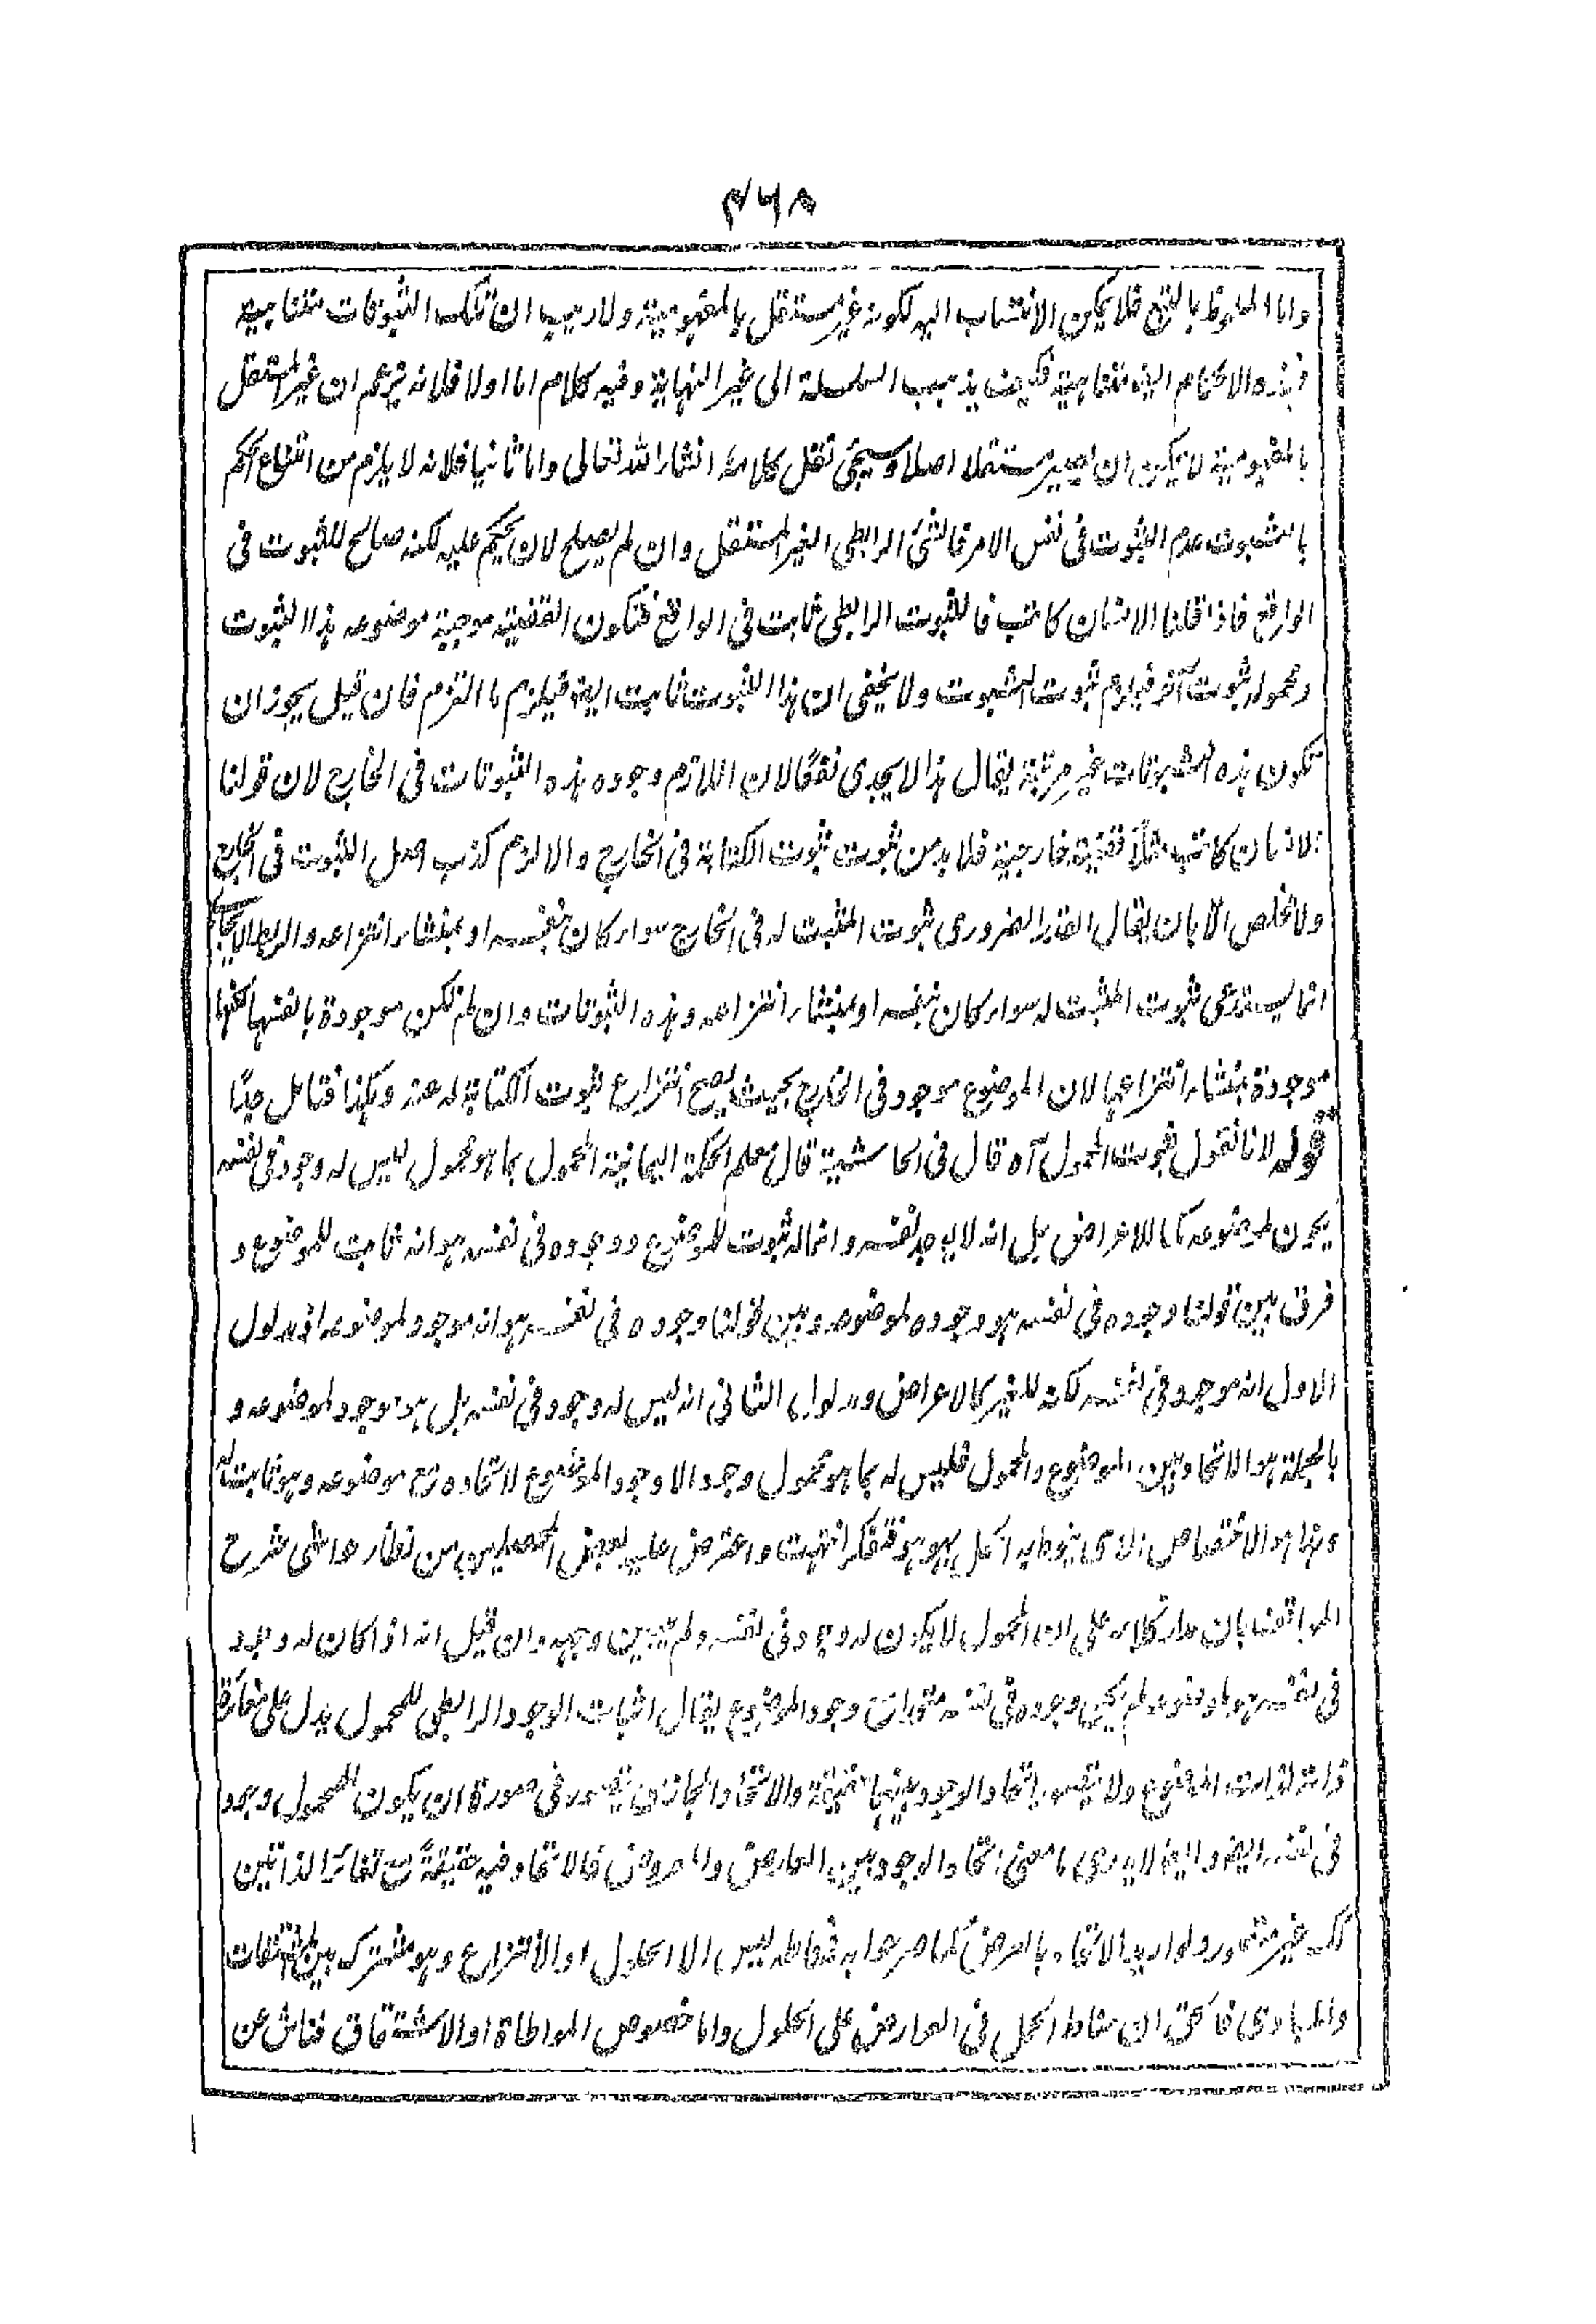 ٣٦٥
واما الملحوظ بالتبع فلا يمكن الانتساب اليه لكونه غير مستقل بالمفهومية ولا ريب ان تلك الثبوتات متناهية
فهذه الاحكام ايض متناهية فكيف يذهب السلسلة الى غير النهاية وفيه كلام اما اولا فلانه يزعم ان غير المستقل
بالمفهومية لا يمكن ان يصير مستقلا اصلا وسيجئ نقل كلامه انشاء الله تعالى واما ثانيا فلانه لا يلزم من انتفاع الحكم
بالثبوت عدم الثبوت فى نفس الامر فالشئ الرابطى الغير المستقل وان لم يصلح لان يحكم عليه لكنه صالح للثبوت فى
الواقع فاذا قلنا الانسان كاتب فالثبوت الرابطى ثابت فى الواقع فتكون القضية موجبة موضوعه هذا الثبوت
ومحموله ثبوت آخر فيلزم ثبوت الثبوت ولا يخفى ان هذا الثبوت ثابت ايض فيلزم ما التزم فان قيل يجوز ان
تكون هذه الثبوتات غير مرتبة يقال هذا لا يجدى نفعا لان اللازم وجود هذه الثبوتات فى الخارج لان قولنا
الانسان كاتب مثلاً قضية خارجية فلا بد من ثبوت ثبوت الكتابة فى الخارج والا لزم كذب حمل الثبوت فى الخارج
ولا مخلص الا بان يقال القدر الضرورى ثبوت المثبت له فى الخارج سواء كان بنفسه او بمنشاء انتزاعه والربط الايجابى
انما يستدعى ثبوت المثبت له سواء كان بنفسه او بمنشاء انتزاعه وهذه الثبوتات وان لم تكن موجودة بانفسها لكنها
موجودة بمنشاء انتزاعها لان الموضوع موجود فى الخارج بحيث يصح انتزاع ثبوت الكتابة له عنه وهكذا فتامل جدًا
قوله لانا نقول ثبوت المحمول آه قال فى الحاشية قال معلم الحكمة اليمانية المحمول بما هو محمول ليس له وجود فى نفسه
يكون لموضوعه كما للاعراض بل انه لا يوجد لنفسه وانما له ثبوت للموضوع ووجوده فى نفسه هو انه ثابت للموضوع و
فرق بين قولنا وجوده فى نفسه هو وجوده لموضوعه وبين قولنا وجوده فى نفسه هو انه موجود لموضوعه اذ مدلول
الاول انه موجود فى نفسه لكنه للغير كالاعراض ومدلول الثانى انه ليس له وجود فى نفسه بل هو موجود لموضوعه و
بالجملة هو الاتحاد بين الموضوع والمحمول فليس له بما هو محمول وجود الا وجود الموضوع لاتحاده مع موضوعه وهو ثابت له
وهذا هو الاختصاص الذى ينوط به الحمل بهو هو فتفكر انتهت واعترض عليه بعض المحصلين من نظار حواشى شرح
المواقف بان مدار كلامه على ان المحمول لا يكون له وجود فى نفسه ولم يتبين وجهه وان قيل انه اذا كان له وجود
فى نفسه هو لموضوعه لم يكن وجوده فى نفسه وجود الموضوع يقال اثبات الوجود الرابطى للمحمول يدل على مغائرة
ذاته لذات الموضوع ولا يتصور اتحاد الوجود بينهما حقيقة والاتحاد المجازى يتصور فى صورة ان يكون للمحمول وجود
فى نفسه ايض وايض لا يدرى ما معنى اتحاد الوجود بين العارض والمعروض فالاتحاد فيه حقيقةً مع تغائر الذاتين
لك غير متصور ولو اريد الاتحاد بالعرض كما صرحوا به فمناطه ليس الا الحلول او الانتزاع وهو مشترك بين المشتقات
والمبادى فالحق ان مناط الحمل فى العارض على الحلول واما خصوص المواطاة او الاشتقاق فناش عن